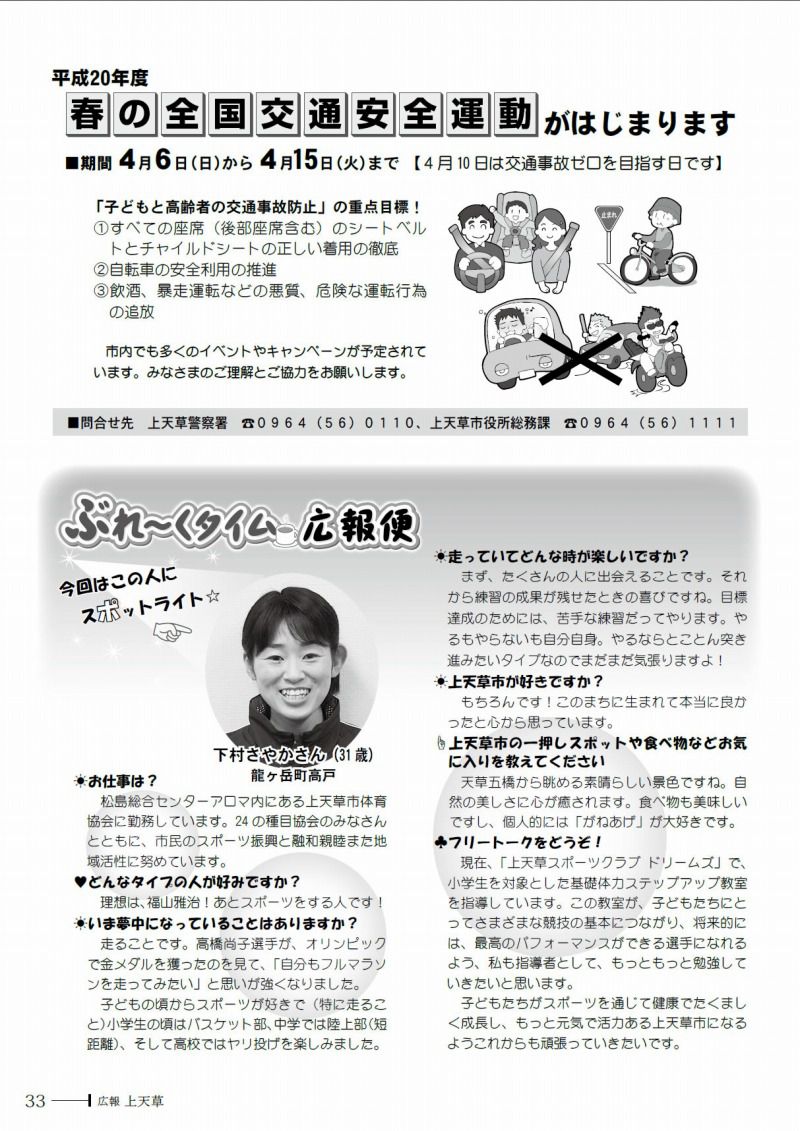 平成20年度
春の全国交通安全運動がはじまります
■期間 4月6日(日)から 4月15日(火)まで 【4月10日は交通事故ゼロを目指す日です】
「子どもと高齢者の交通事故防止」の重点目標！
①すべての座席（後部座席含む）のシートベル
トとチャイルドシートの正しい着用の徹底
②自転車の安全利用の推進
③飲酒、暴走運転などの悪質、危険な運転行為
の追放
市内でも多くのイベントやキャンペーンが予定されて
います。みなさまのご理解とご協力をお願いします。
止まれ
■問合せ先　上天草警察署　☎０９６４（５６）０１１０、上天草市役所総務課　☎０９６４（５６）１１１１
ぶれ～くタイム 広報便
今回はこの人に
スポットライト☆
下村さやかさん（31歳）
龍ヶ岳町高戸
☀お仕事は？
松島総合センターアロマ内にある上天草市体育
協会に勤務しています。24の種目協会のみなさん
とともに、市民のスポーツ振興と融和親睦また地
域活性に努めています。
♥どんなタイプの人が好みですか？
理想は、福山雅治！あとスポーツをする人です！
☀いま夢中になっていることはありますか？
走ることです。高橋尚子選手が、オリンピック
で金メダルを獲ったのを見て、「自分もフルマラソ
ンを走ってみたい」と思いが強くなりました。
子どもの頃からスポーツが好きで（特に走るこ
と）小学生の頃はバスケット部、中学では陸上部（短
距離）、そして高校ではヤリ投げを楽しみました。
☀走っていてどんな時が楽しいですか？
まず、たくさんの人に出会えることです。それ
から練習の成果が残せたときの喜びですね。目標
達成のためには、苦手な練習だってやります。や
るもやらないも自分自身。やるならとことん突き
進みたいタイプなのでまだまだ気張りますよ！
☀上天草市が好きですか？
もちろんです！このまちに生まれて本当に良か
ったと心から思っています。
☝上天草市の一押しスポットや食べ物などお気
に入りを教えてください
天草五橋から眺める素晴らしい景色ですね。自
然の美しさに心が癒されます。食べ物も美味しい
ですし、個人的には「がねあげ」が大好きです。
♣フリートークをどうぞ！
現在、「上天草スポーツクラブ ドリームズ」で、
小学生を対象とした基礎体力ステップアップ教室
を指導しています。この教室が、子どもたちにと
ってさまざまな競技の基本につながり、将来的に
は、最高のパフォーマンスができる選手になれる
よう、私も指導者として、もっともっと勉強して
いきたいと思います。
子どもたちがスポーツを通じて健康でたくまし
く成長し、もっと元気で活力ある上天草市になる
ようこれからも頑張っていきたいです。
33 広報 上天草